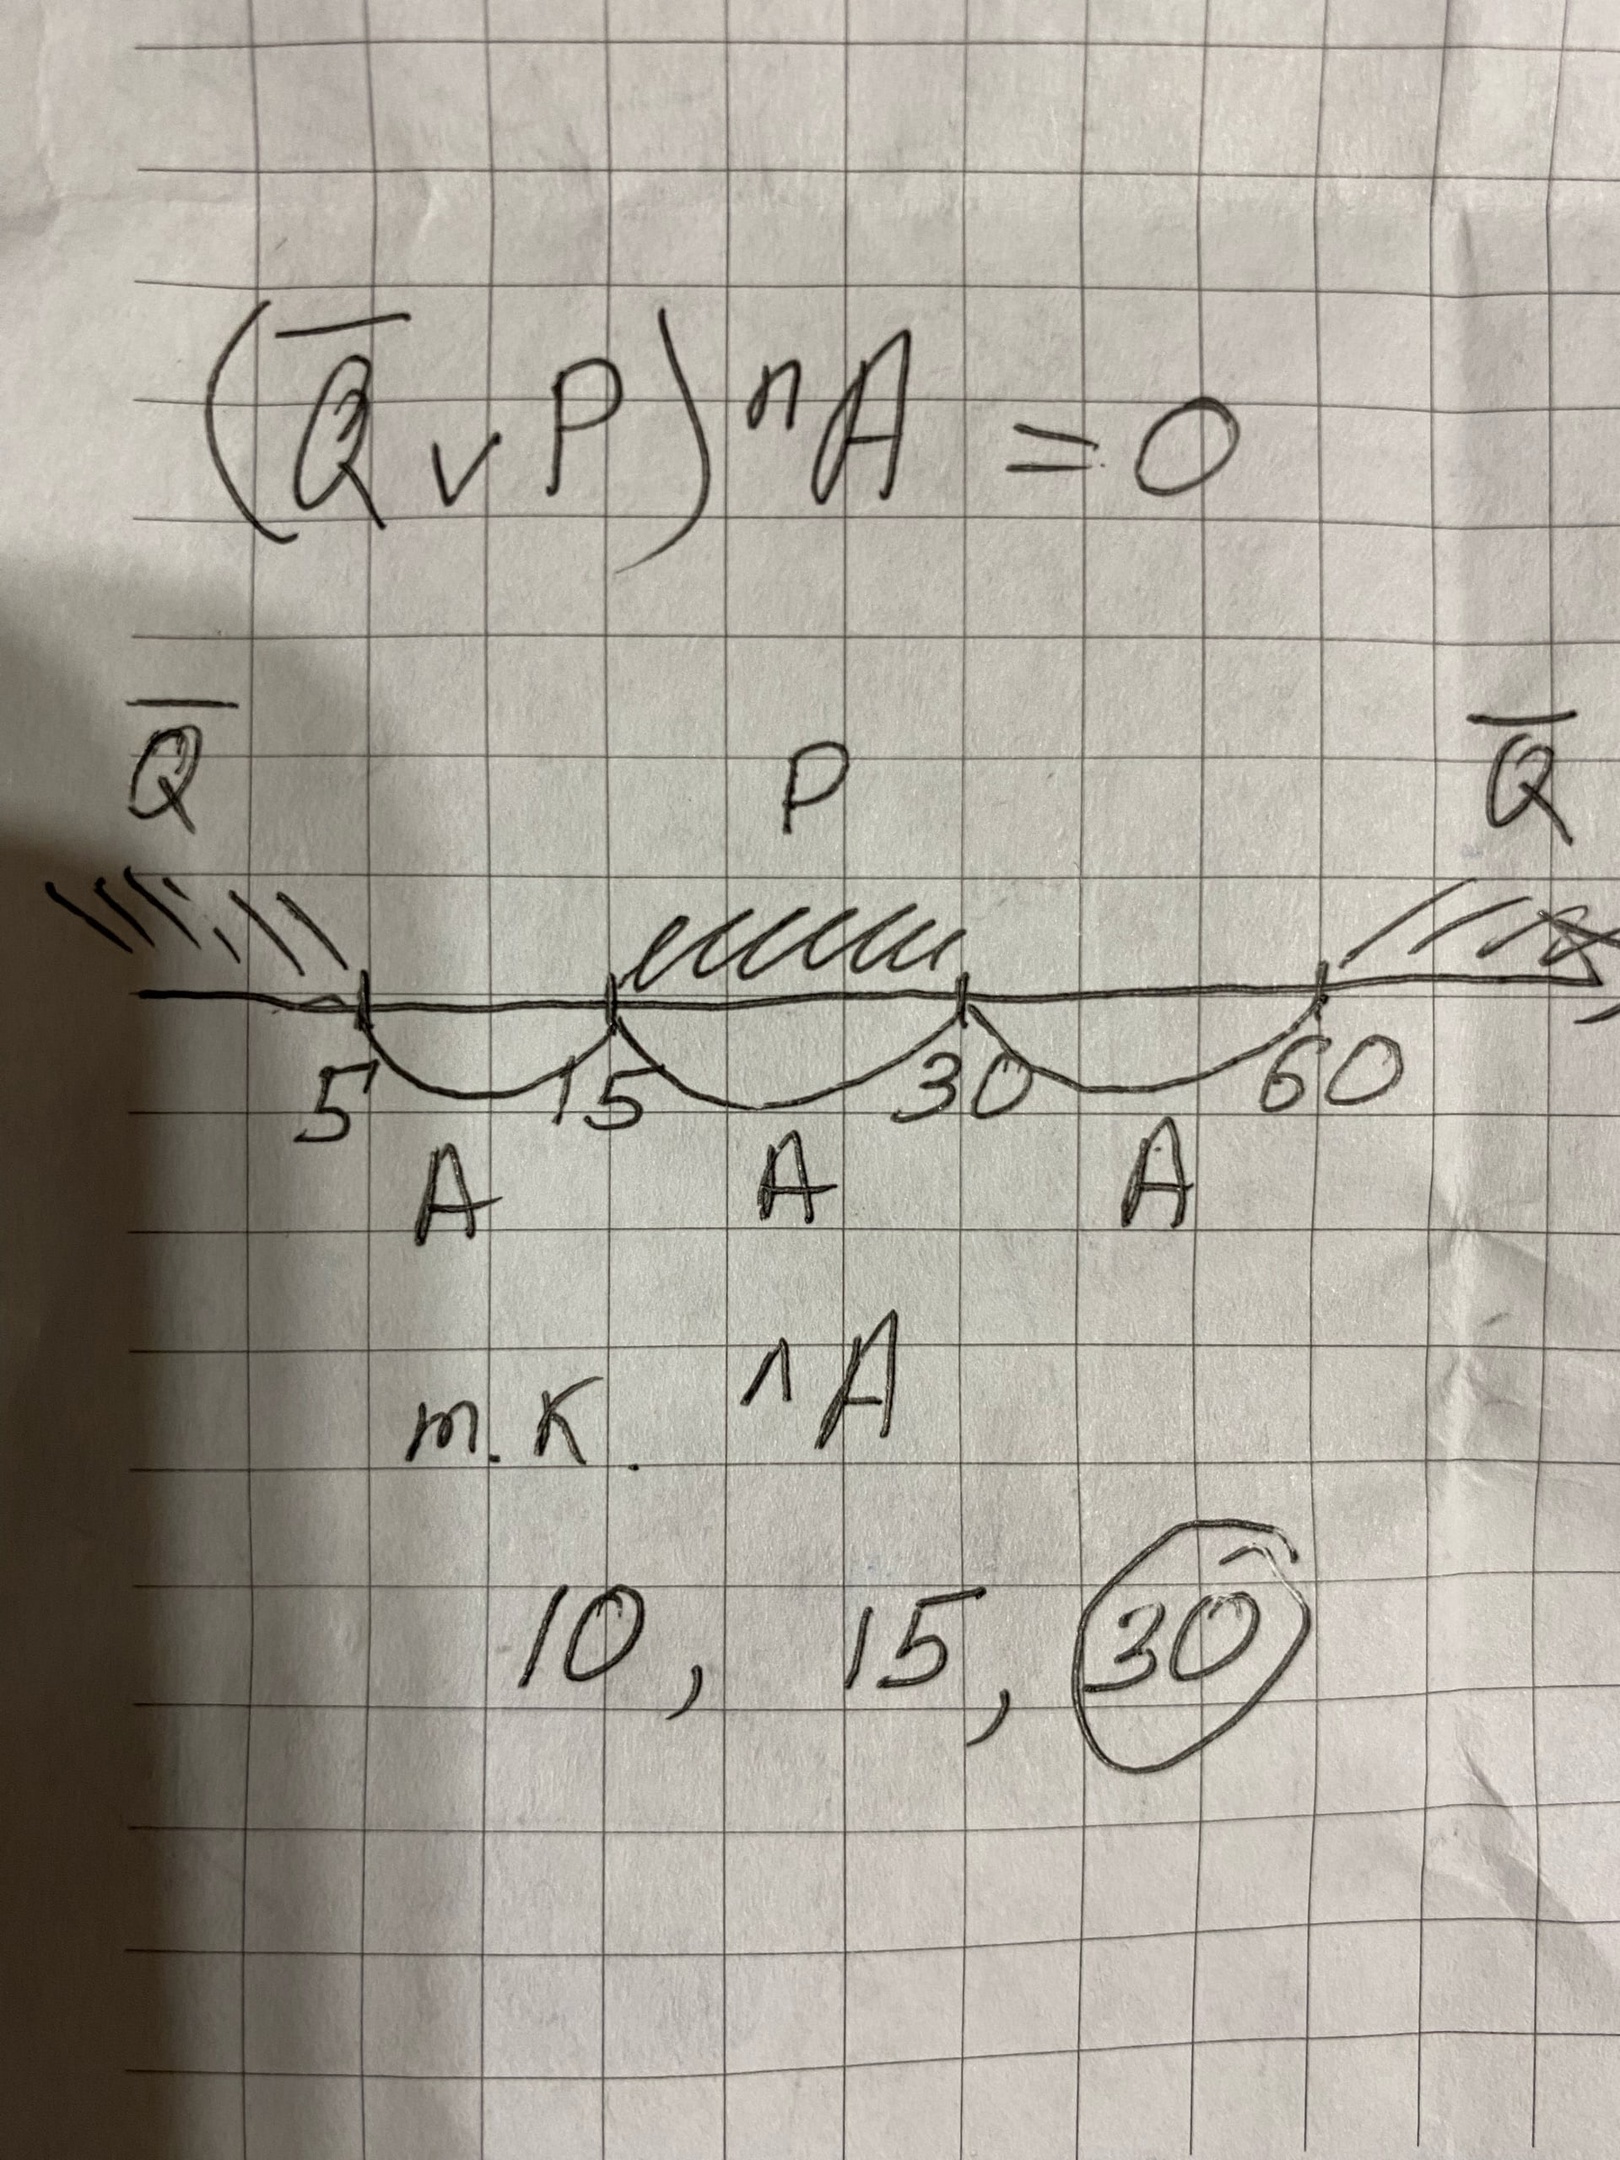 (Q̅ ∨ P) ∧ A = 0
Q̅ P Q̅
5 15 30 60
A A A
т.к. ∧ A
10, 15, 30